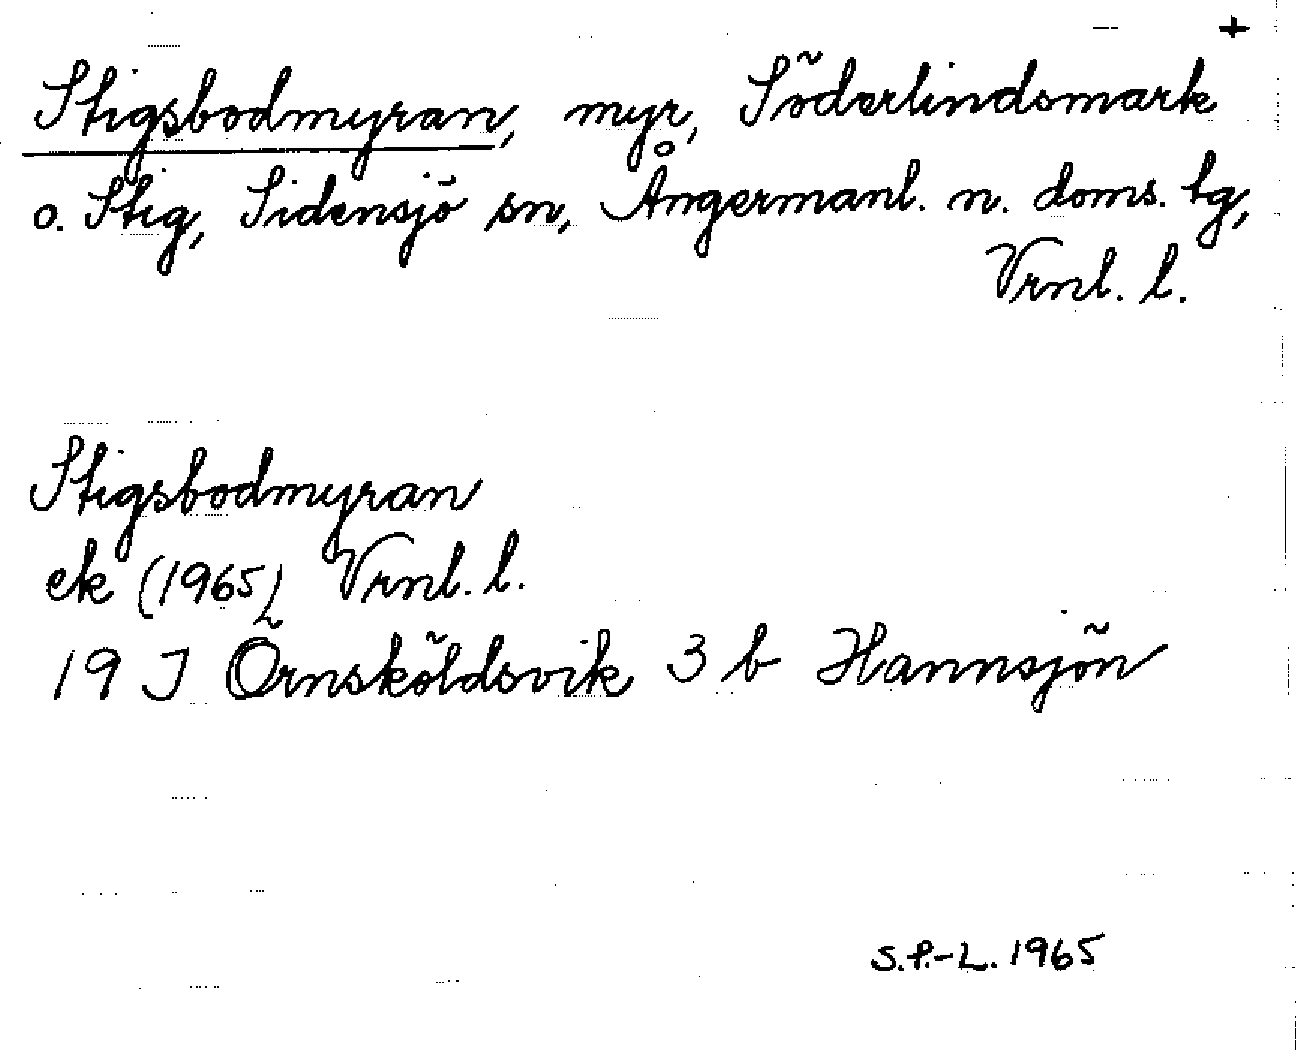 +
Stigsbodmyran, myr, Söderlindsmark
o. Stig, Sidensjö sn, Ångermanl. n. doms. tg,
Vrnl. l.
Stigsbodmyran
ek (1965) Vrnl. l.
19 J Örnsköldsvik 3 b Hannsjön
S.P.-L. 1965